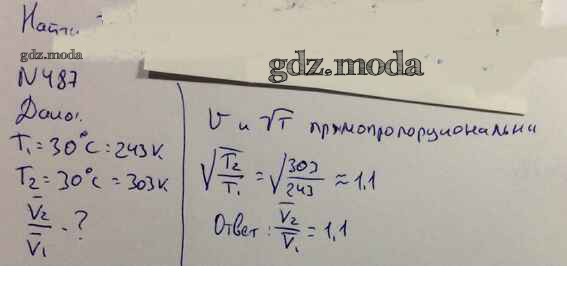 Найти
gdz.moda
gdz.moda
N487
Дано:
T₁=30°C=243K
T₂=30°C=303K
V̅₂/V̅₁ - ?
V и √T прямопропорциональни
√(T₂/T₁) = √(303/243) ≈ 1,1
Ответ: V̅₂/V̅₁ = 1,1